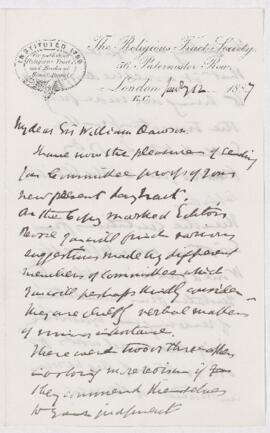 INSTITUTED 1799
Religious Tracts
The Religious Tract Society,
56 Paternoster Row,
London July 12 1887
E.C.
My dear Sir William Dawson
I have now the pleasure of sending
you Committee proof of your
new present day tract.
On the Copy marked Editors
Revise you will find various
suggestions made by different
members of Committee which
you will perhaps kindly consider
They are chiefly verbal matters
of minor importance.
There are two or three others
involving more revision if
they commend themselves
to your judgment